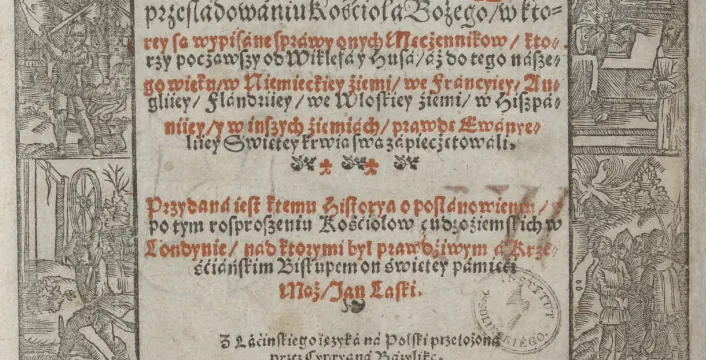 prześladowaniu Kościołá Bożego/ w kto-
rey są wypisáne spráwy onych Męcżennikow/ kto-
rzy pocżąwszy od Wiklefá y Husá/ áż do tego násze-
go wieku/ w Niemieckiey źiemi/ we Fráncyiey/ An-
gliiey/ Flándriiey/ we Włoskiey źiemi/ w Hiszpá-
niiey/ y w inszych źiemiách/ prawdę Ewánye-
liiey Swiętey krwią swą zápiecżętowáli.
Przydána iest k temu Historya o postánowieniu/ y
po tym rosproszeniu Kościołow cudzoźiemskich w
Londynie/ nád ktorymi był prawdźiwym á Krze-
śćiáńskim Biskupem on świętey pámięci
Mąż/ Jan Láski.
Z Łáćińskiego ięzyká ná Polski przełożoná
przez Cypryaná Bázyliká.
INSTYTUT